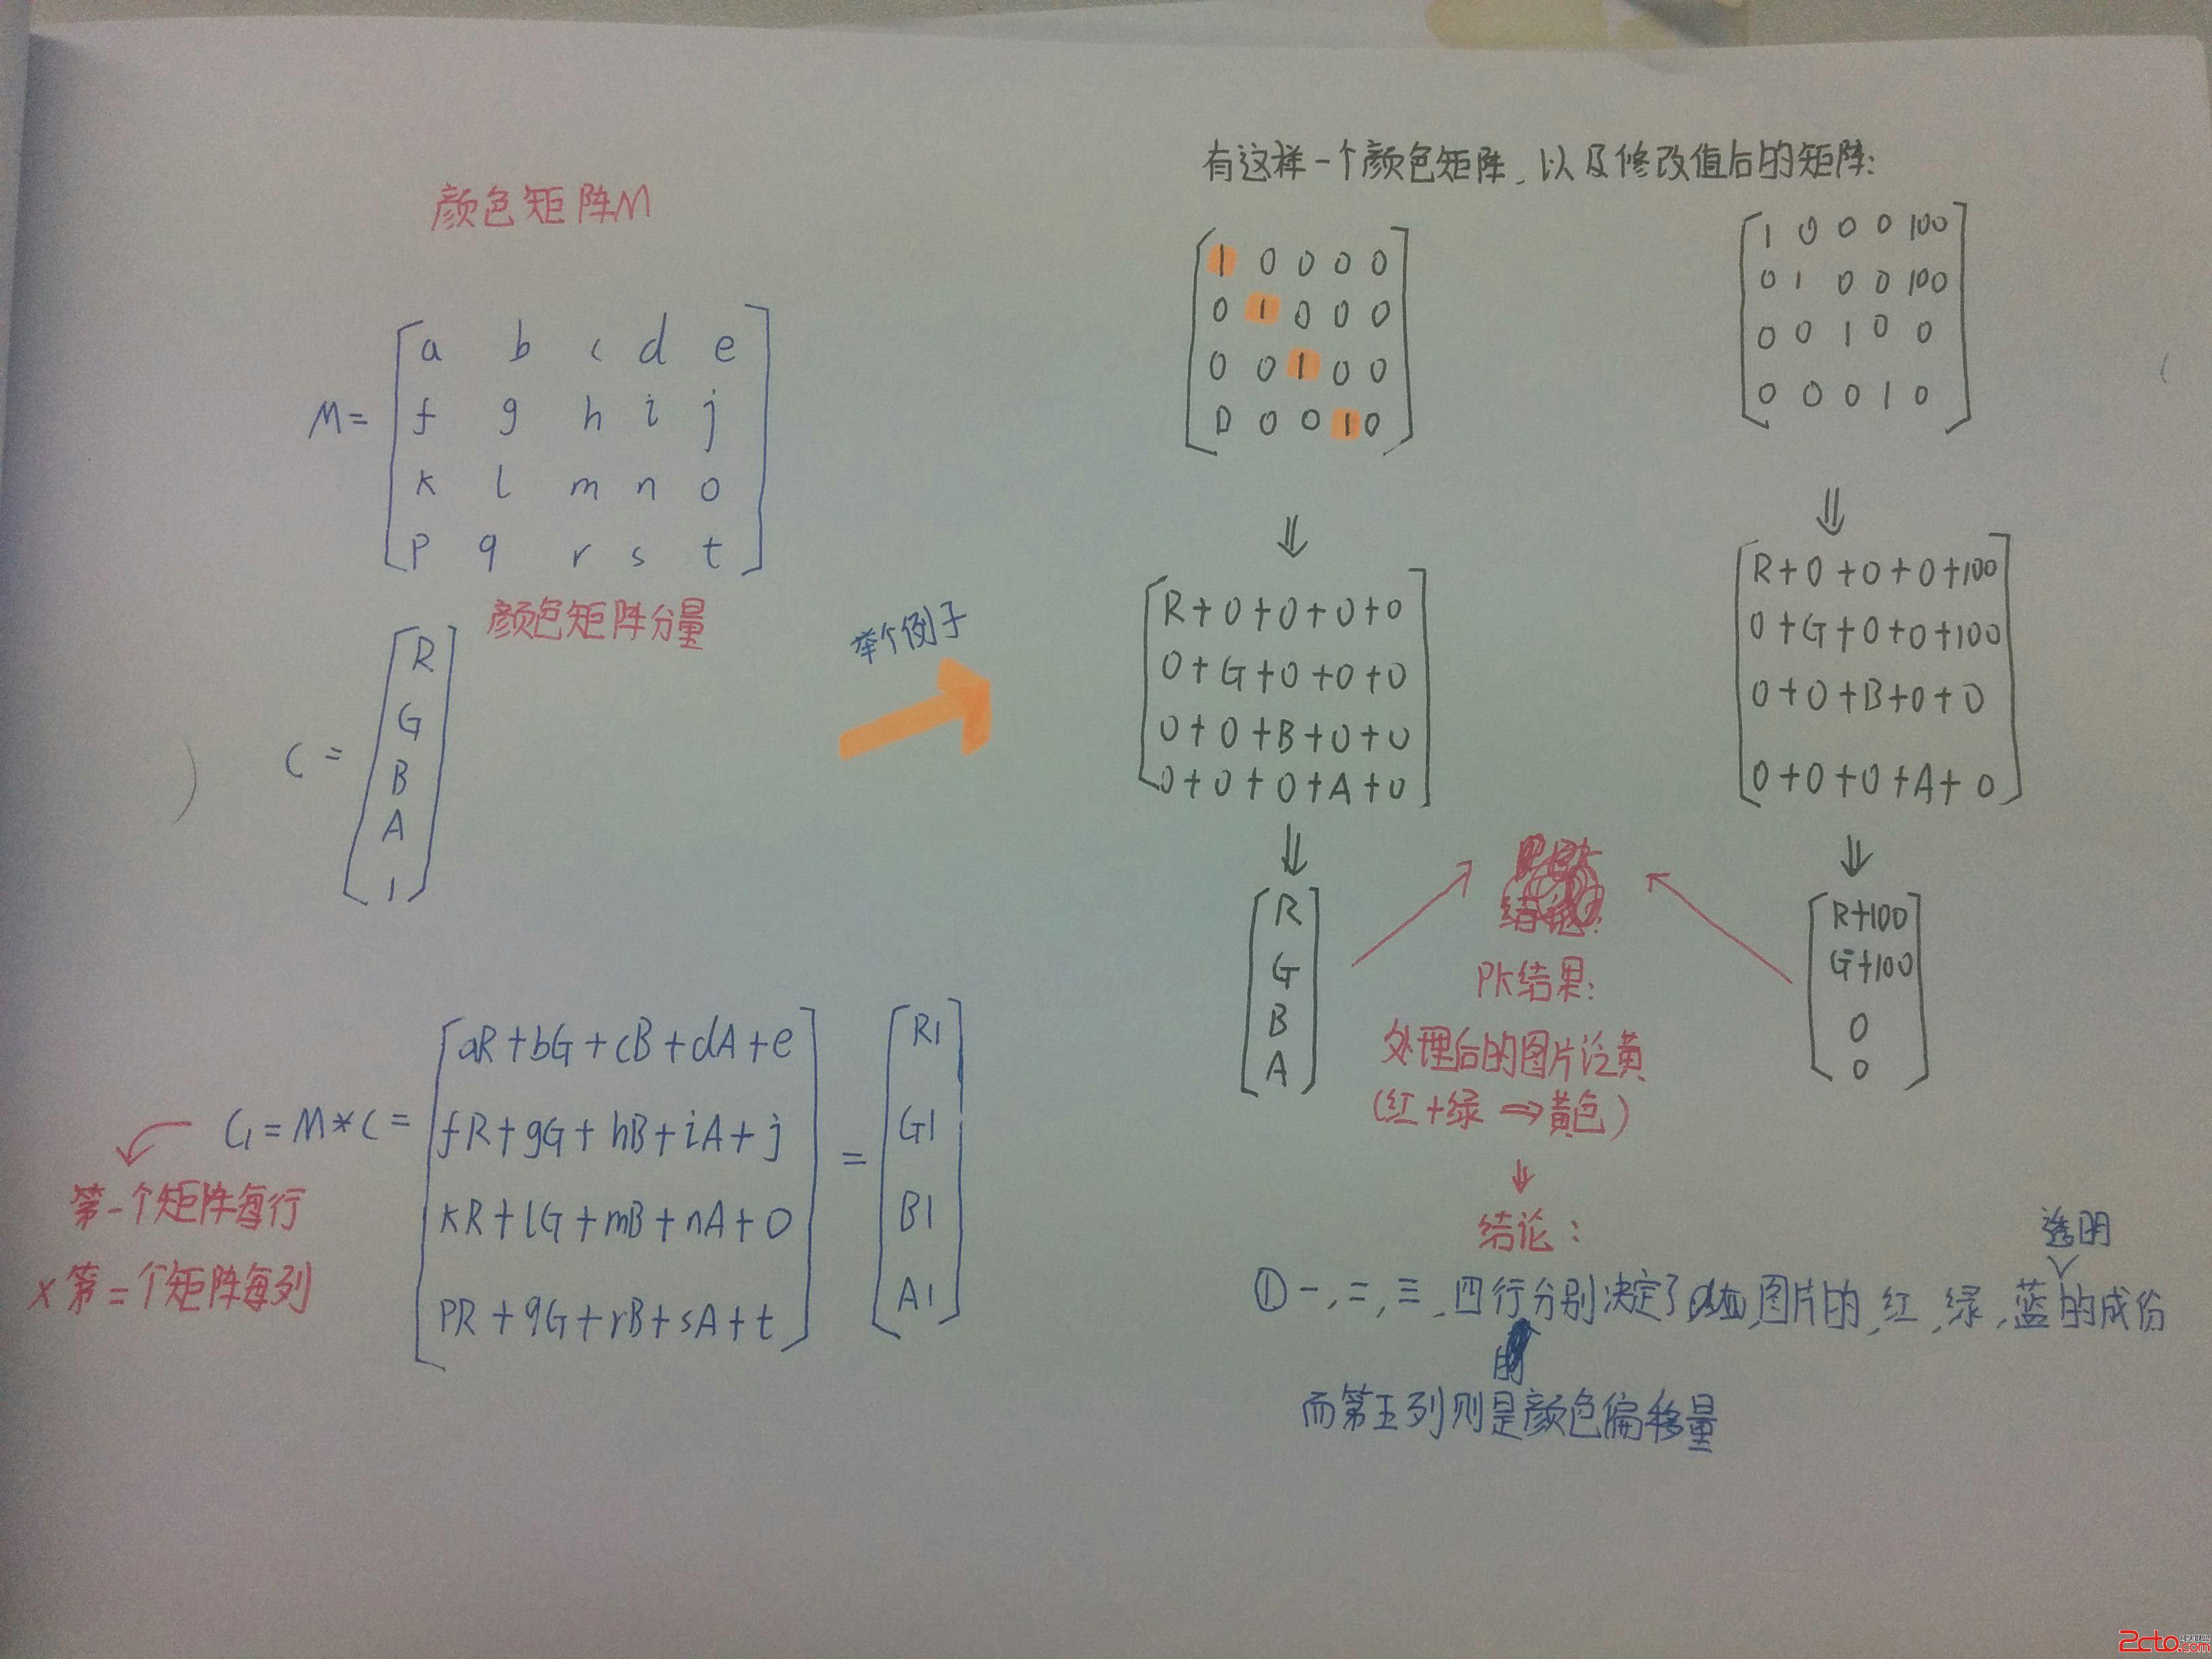 颜色矩阵M
M=
a b c d e
f g h i j
k l m n o
p q r s t
颜色矩阵分量
C =
R
G
B
A
1
C1 = M * C =
aR+bG+cB+dA+e
fR+gG+hB+iA+j
kR+lG+mB+nA+o
pR+qG+rB+sA+t
=
R1
G1
B1
A1
第一个矩阵每行
x 第二个矩阵每列
举个例子
有这样一个颜色矩阵,以及修改值后的矩阵:
1 0 0 0 0
0 1 0 0 0
0 0 1 0 0
0 0 0 1 0
⇓
R+0+0+0+0
0+G+0+0+0
0+0+B+0+0
0+0+0+A+0
⇓
R
G
B
A
1 0 0 0 100
0 1 0 0 100
0 0 1 0 0
0 0 0 1 0
⇓
R+0+0+0+100
0+G+0+0+100
0+0+B+0+0
0+0+0+A+0
⇓
R+100
G+100
0
0
PK结果:
处理后的图片泛黄
(红+绿⇒黄色)
结论:
透明
①一,二,三,四行分别决定了图片的,红,绿,蓝的成份
的
而第五列则是颜色偏移量
2cto.com